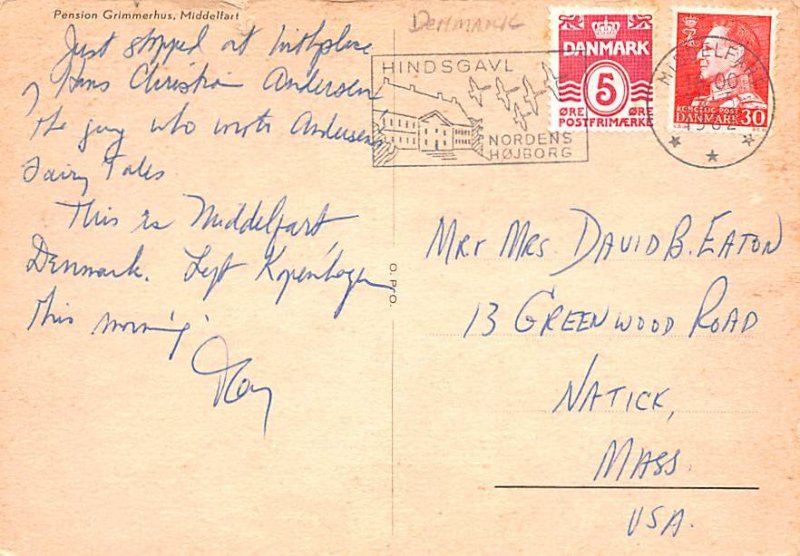 Pension Grimmerhus, Middelfart
Denmark
Just stopped at birthplace
of Hans Christian Andersen
The guy who wrote Andersens
Fairy Tales
This is Middelfart
Denmark. Left Kopenhagen
this morning.
Ray
O. PRO.
HINDSGAVL
NORDENS
HØJBORG
DANMARK
5
ØRE ØRE
POSTFRIMÆRKE
MIDDELFART
1962
KONGELIG POST
DANMARK 30
Mr & Mrs. DAVID B. EATON
13 GREENWOOD ROAD
NATICK,
MASS.
USA.